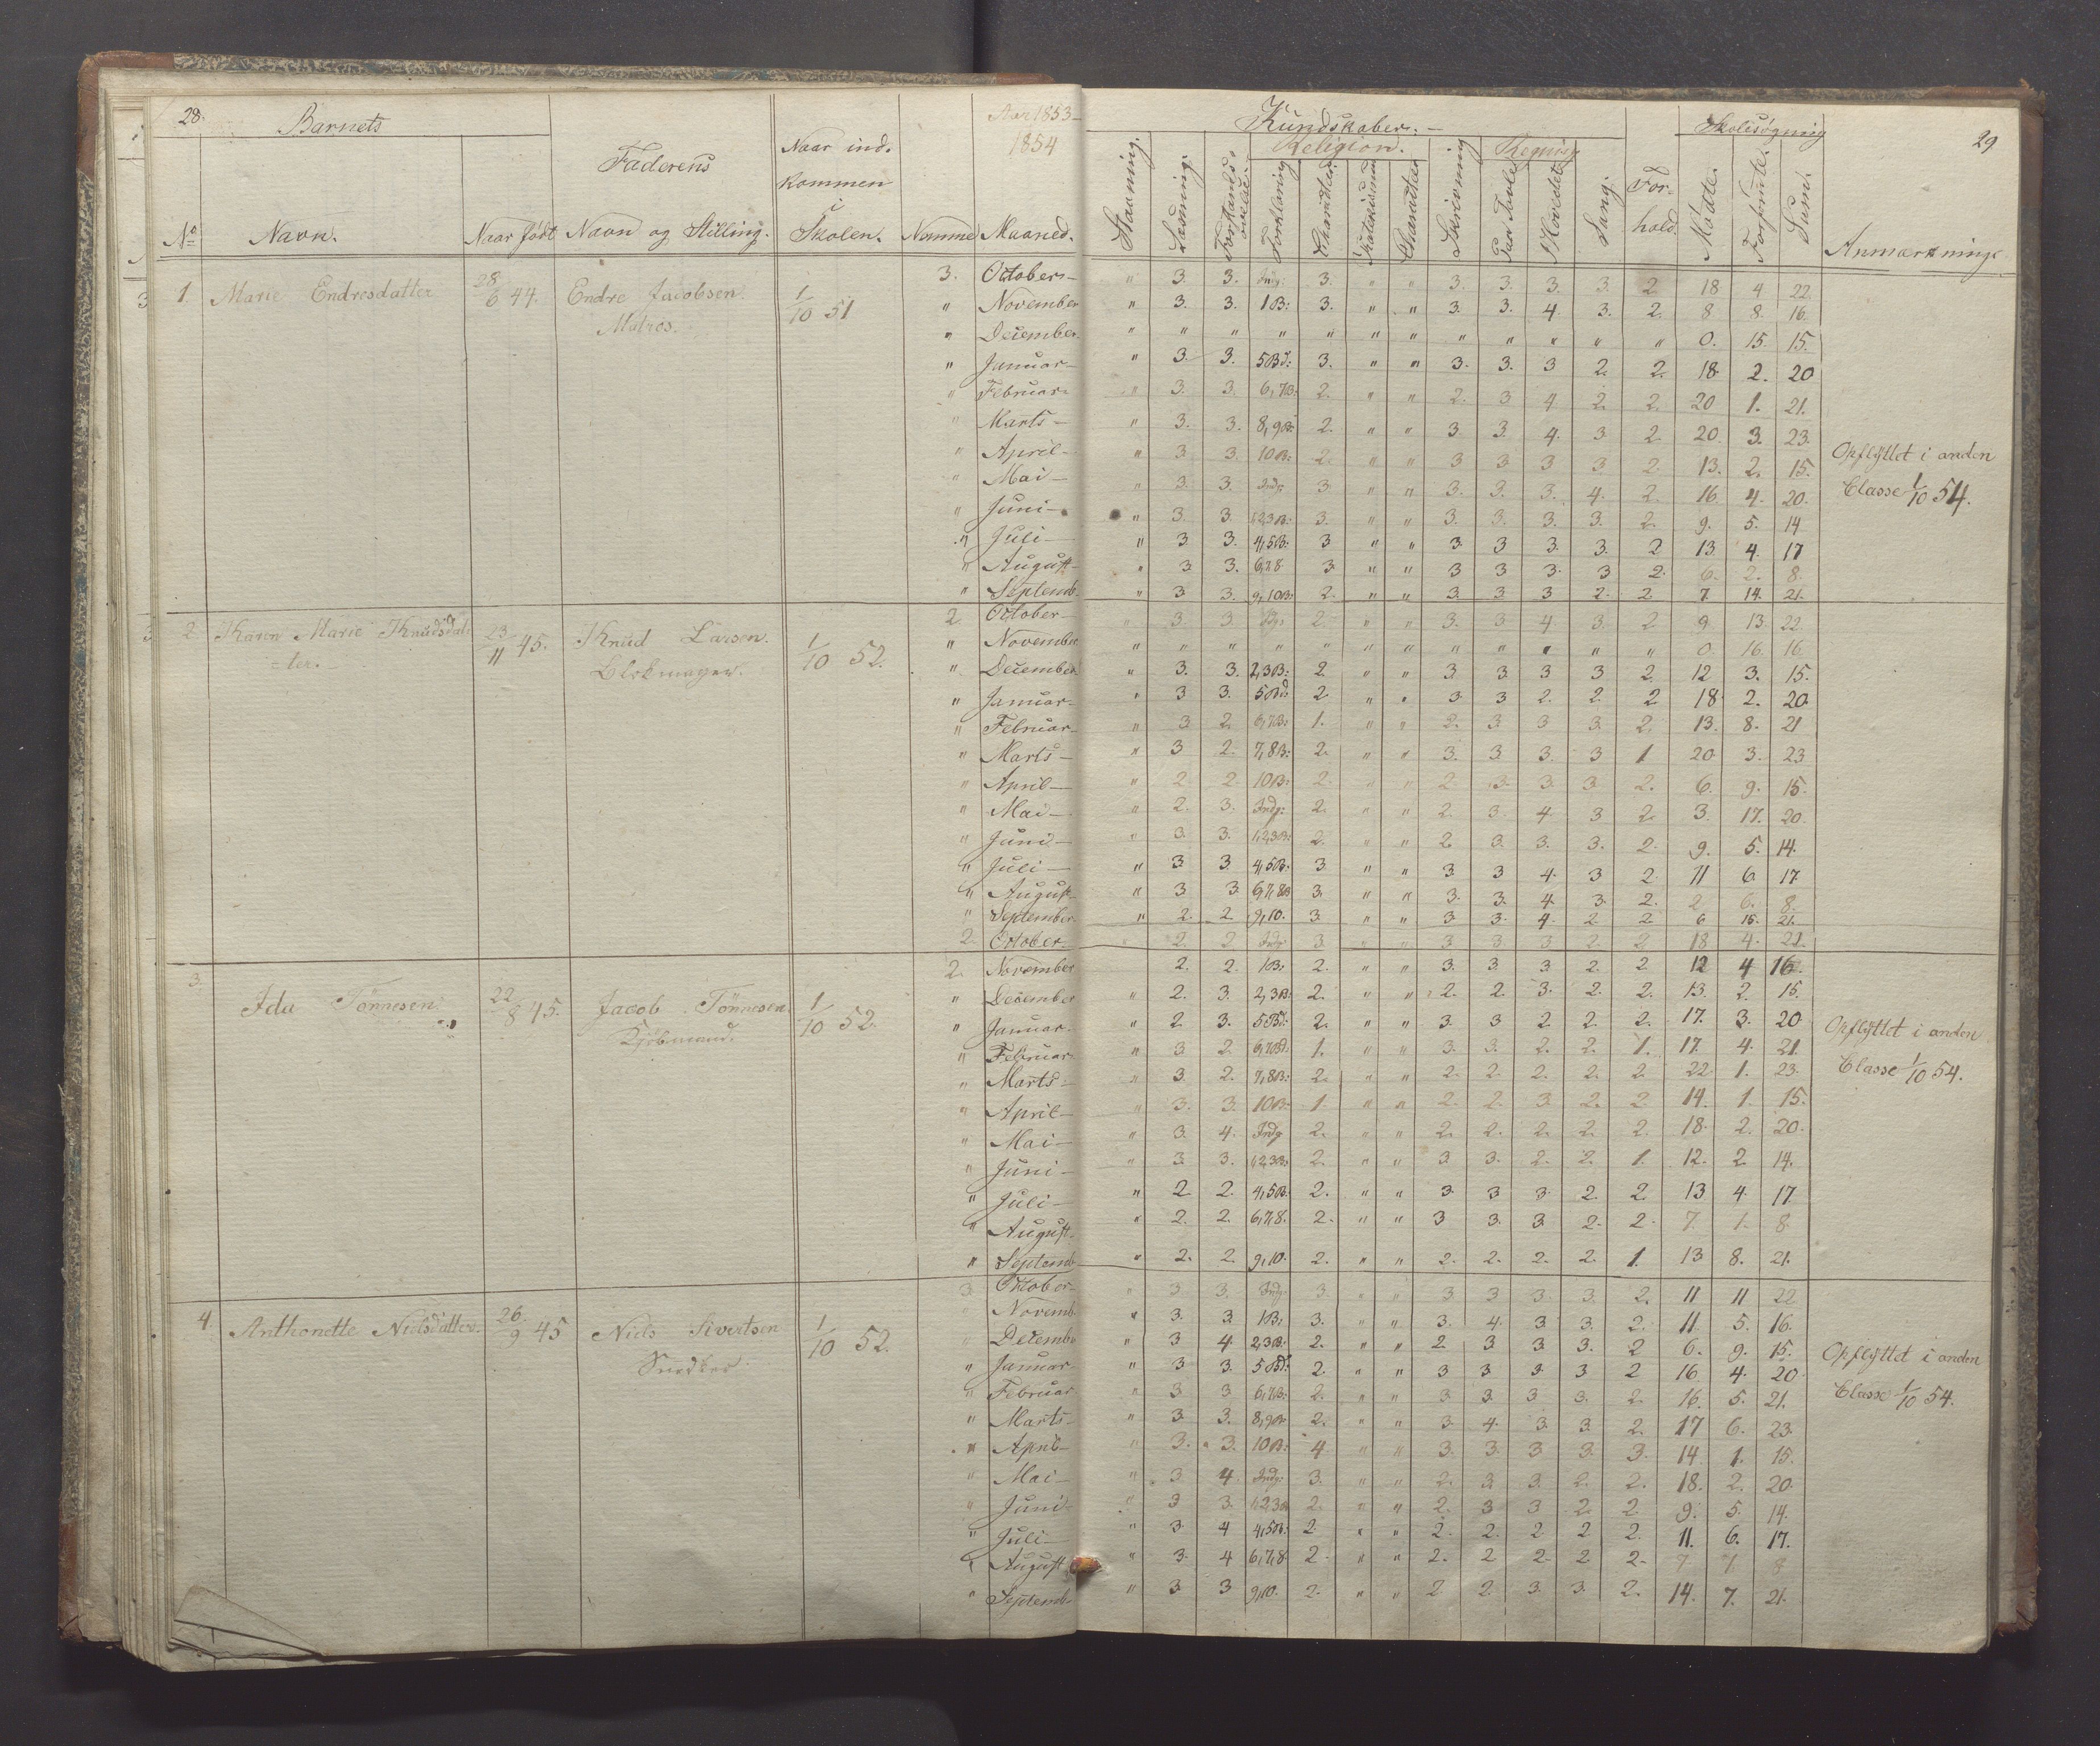 28.
Barnets
Aar 1853-
1854
Faderens
Naar ind.
kommen
i
No Navn. Naar født Navn og Stilling. Skolen. Nomme Maaned.
1. Marie Endresdatter 28/6 44. Endre Jacobsen. 1/10 51 3. October-
Matros. " November
" December.
" Januar-
" Februar-
" Marts-
" April-
" Mai-
" Juni-
" Juli-
" August-
" Septemb.
2 Karen Marie Knudsdat 23/11 45. Knud Larsen. 1/10 52. 2 October-
=ter.- Blokmager. " November
" December
" Januar-
" Februar-
" Marts-
" April-
" Mai-
" Juni-
" Juli-
" August-
" September
2. October-
3. Ida Tönnesen 22/8 45. Jacob Tönnesen 1/10 52. 2. November
Kjöbmand. " December
" Januar-
" Februar-
" Marts-
" April-
" Mai-
" Juni-
" Juli-
" August-
" Septemb
4. Anthonette Nielsdatter. 26/9 45 Niels Sivertsen 1/10 52. 3. October-
Snedker Novemb.
Decemb.
" Januar-
" Februar-
" Marts-
" April-
" Mai-
" Juni-
" Juli-
" August
" Septemb.
29
Kundskaber.- Skolesøgning
Religion. Regning
Stavning. Læsning. Forstands øvelse. Forklaring Skrivning Paa Tavle I Hovedet Sang. For-hold. Mødte. Forsømte. Sum. Anmærkning.
" 3. 3. Indg: 3. " " 3. 3. 3. 3. 2 18 4 22.
" 3. 3. 1B: 3. " " 3. 3. 4. 3. 2. 8 8. 16.
" " " " " " " " " " " " 0. 15. 15.
" 3. 3. 5Bd: 3. " " 3. 3. 3 2. 2. 18. 2. 20
" 3. 3. 6,7B: 2. " " 2. 3 4 2. 2. 20 1. 21.
" 3. 3. 8,9B: 2. " " 3. 3. 4. 3. 2 20. 3. 23.
" 3 3. 10B: 2. " " 3 3 3 3 2 13. 2. 15.
" 3. 3. Indg. 3 " " 3. 3. 3. 4. 2. 16. 4. 20.
" 3. 3. 1,2,3B: 3. " " 3. 3. 3. 3. 2. 9. 5. 14
" 3 3. 4,5B: 3 " " 3 3 3. 3. 2 13 4. 17
" 3 3. 6,7,8 3. " " 3 3 3. 3 2. 6. 2. 8.
" 3 3. 9,10B: 2. " " 3. 3 3 2. 2 7 14. 21.
Opflyttet i anden
Classe 1/10 54.
" 3. 3. Indg: 2. " " 3. 3 4. 3. 2 9. 13. 22.
" " " " " " " " " " " " 0. 16. 16.
" 3. 3. 2,3B: 2. " " 3 3 3 3 2. 12 3. 15.
" 3 3. 5Bd: 2. " " 3 3 2. 2. 2 18. 2. 20.
" 3 2. 6,7B: 1. " " 2. 3. 3 3. 2. 13. 8. 21
" 3 2. 7,8B: 2. " " 3. 3. 3. 3 1 20. 3. 23
" 2. 2. 10B: 2. " " 2. 3. 3. 3. 2. 6. 9. 15.
" 2. 3. Indg: 2. " " 2. 3. 4. 3 2. 3. 17. 20.
" 3. 3. 1,2,3B: 2. " " 2. 3. 3. 3. 2. 9. 5. 14.
" 3 3 4,5B. 3 " " 3 3 4. 3 2. 11 6 17
" 3 3. 6,7,8B 3. " " 3. 3. 4. 3. 2. 2. 6. 8.
" 2. 2 9,10. 3. " " 3 3. 4. 2 2. 6 15. 21.
" 2. 2 Indg 3. " " 3 3 3 2. 2 18 4. 22.
2. 2. 1B: 2. " " 3. 3. 3 2. 2 12 4 16.
" 2. 3. 2,3B: 2. " " 2. 2. 3. 2. 2. 13. 2. 15.
" 2 3. 5Bd: 2. " " 3. 3 2. 2. 2. 17. 3. 20
" 3 2. 6,7Bd. 1. " " 3. 3. 2. 2. 1. 17. 4. 21
" 3. 2. 7,8B: 2. " " 2. 2. 2. 2. 2. 22 1. 23.
" 3. 3. 10B. 1. " " 2. 2. 3. 2. 2 14. 1. 15.
" 3. 4. Indg 2. " " 2. 2. 2. 2. 2. 18. 2. 20.
" 3. 3. 1,2,3B: 2. " " 3 3. 2. 2. 1. 12. 2 14.
" 2 2. 4,5B. 2. " " 3. 3 3. 2. 2. 13 4. 17
" 2. 2. 6,7,8. 2. " " 3 3. 3. 2. 2. 7. 1. 8
" 2. 2 9,10. 2. " " 2. 2. 2. 2. 1. 13 8. 21.
Opflyttet i anden
Classe 1/10 54.
" 3 3. Indg. 3. " " 3 3 3 3. 2. 11 11 22
" 3. 3. 1B: 3. " " 3. 4. 3 3. 2. 11. 5. 16.
" 3 4 2,3B: 2. " " 2 3 3 3. 2 6. 9. 15.
" 3 3. 5Bd: 2. " " 3 3 3 3 2 16 4. 20
" 3 3 6,7B: 2. " " 3 3 3 3. 2. 16. 5. 21.
" 3. 3. 8,9B. 2. " " 3. 4. 3. 3. 2. 17 6. 23.
" 3. 3. 10B: 4. " " 3. 3. 3. 3. 3. 14 1. 15.
" 3. 4. Indg: 3. " " 2. 3. 3. 2. 2. 18. 2. 20.
" 3 3. 1,2,3B 2. " " 2. 3 3 2. 2 9. 5. 14.
" 3. 4 4,5B: 2. " " 2. 2. 2 2 2. 11. 6. 17.
" 3. 4 6,7,8 2. " " 2. 2 2. 2. 2. 7. 1. 8
" 3 3 9,10. 2. " " 2 2. 3. 3. 2. 14. 7. 21.
Opflyttet i anden
Classe 1/10 54.